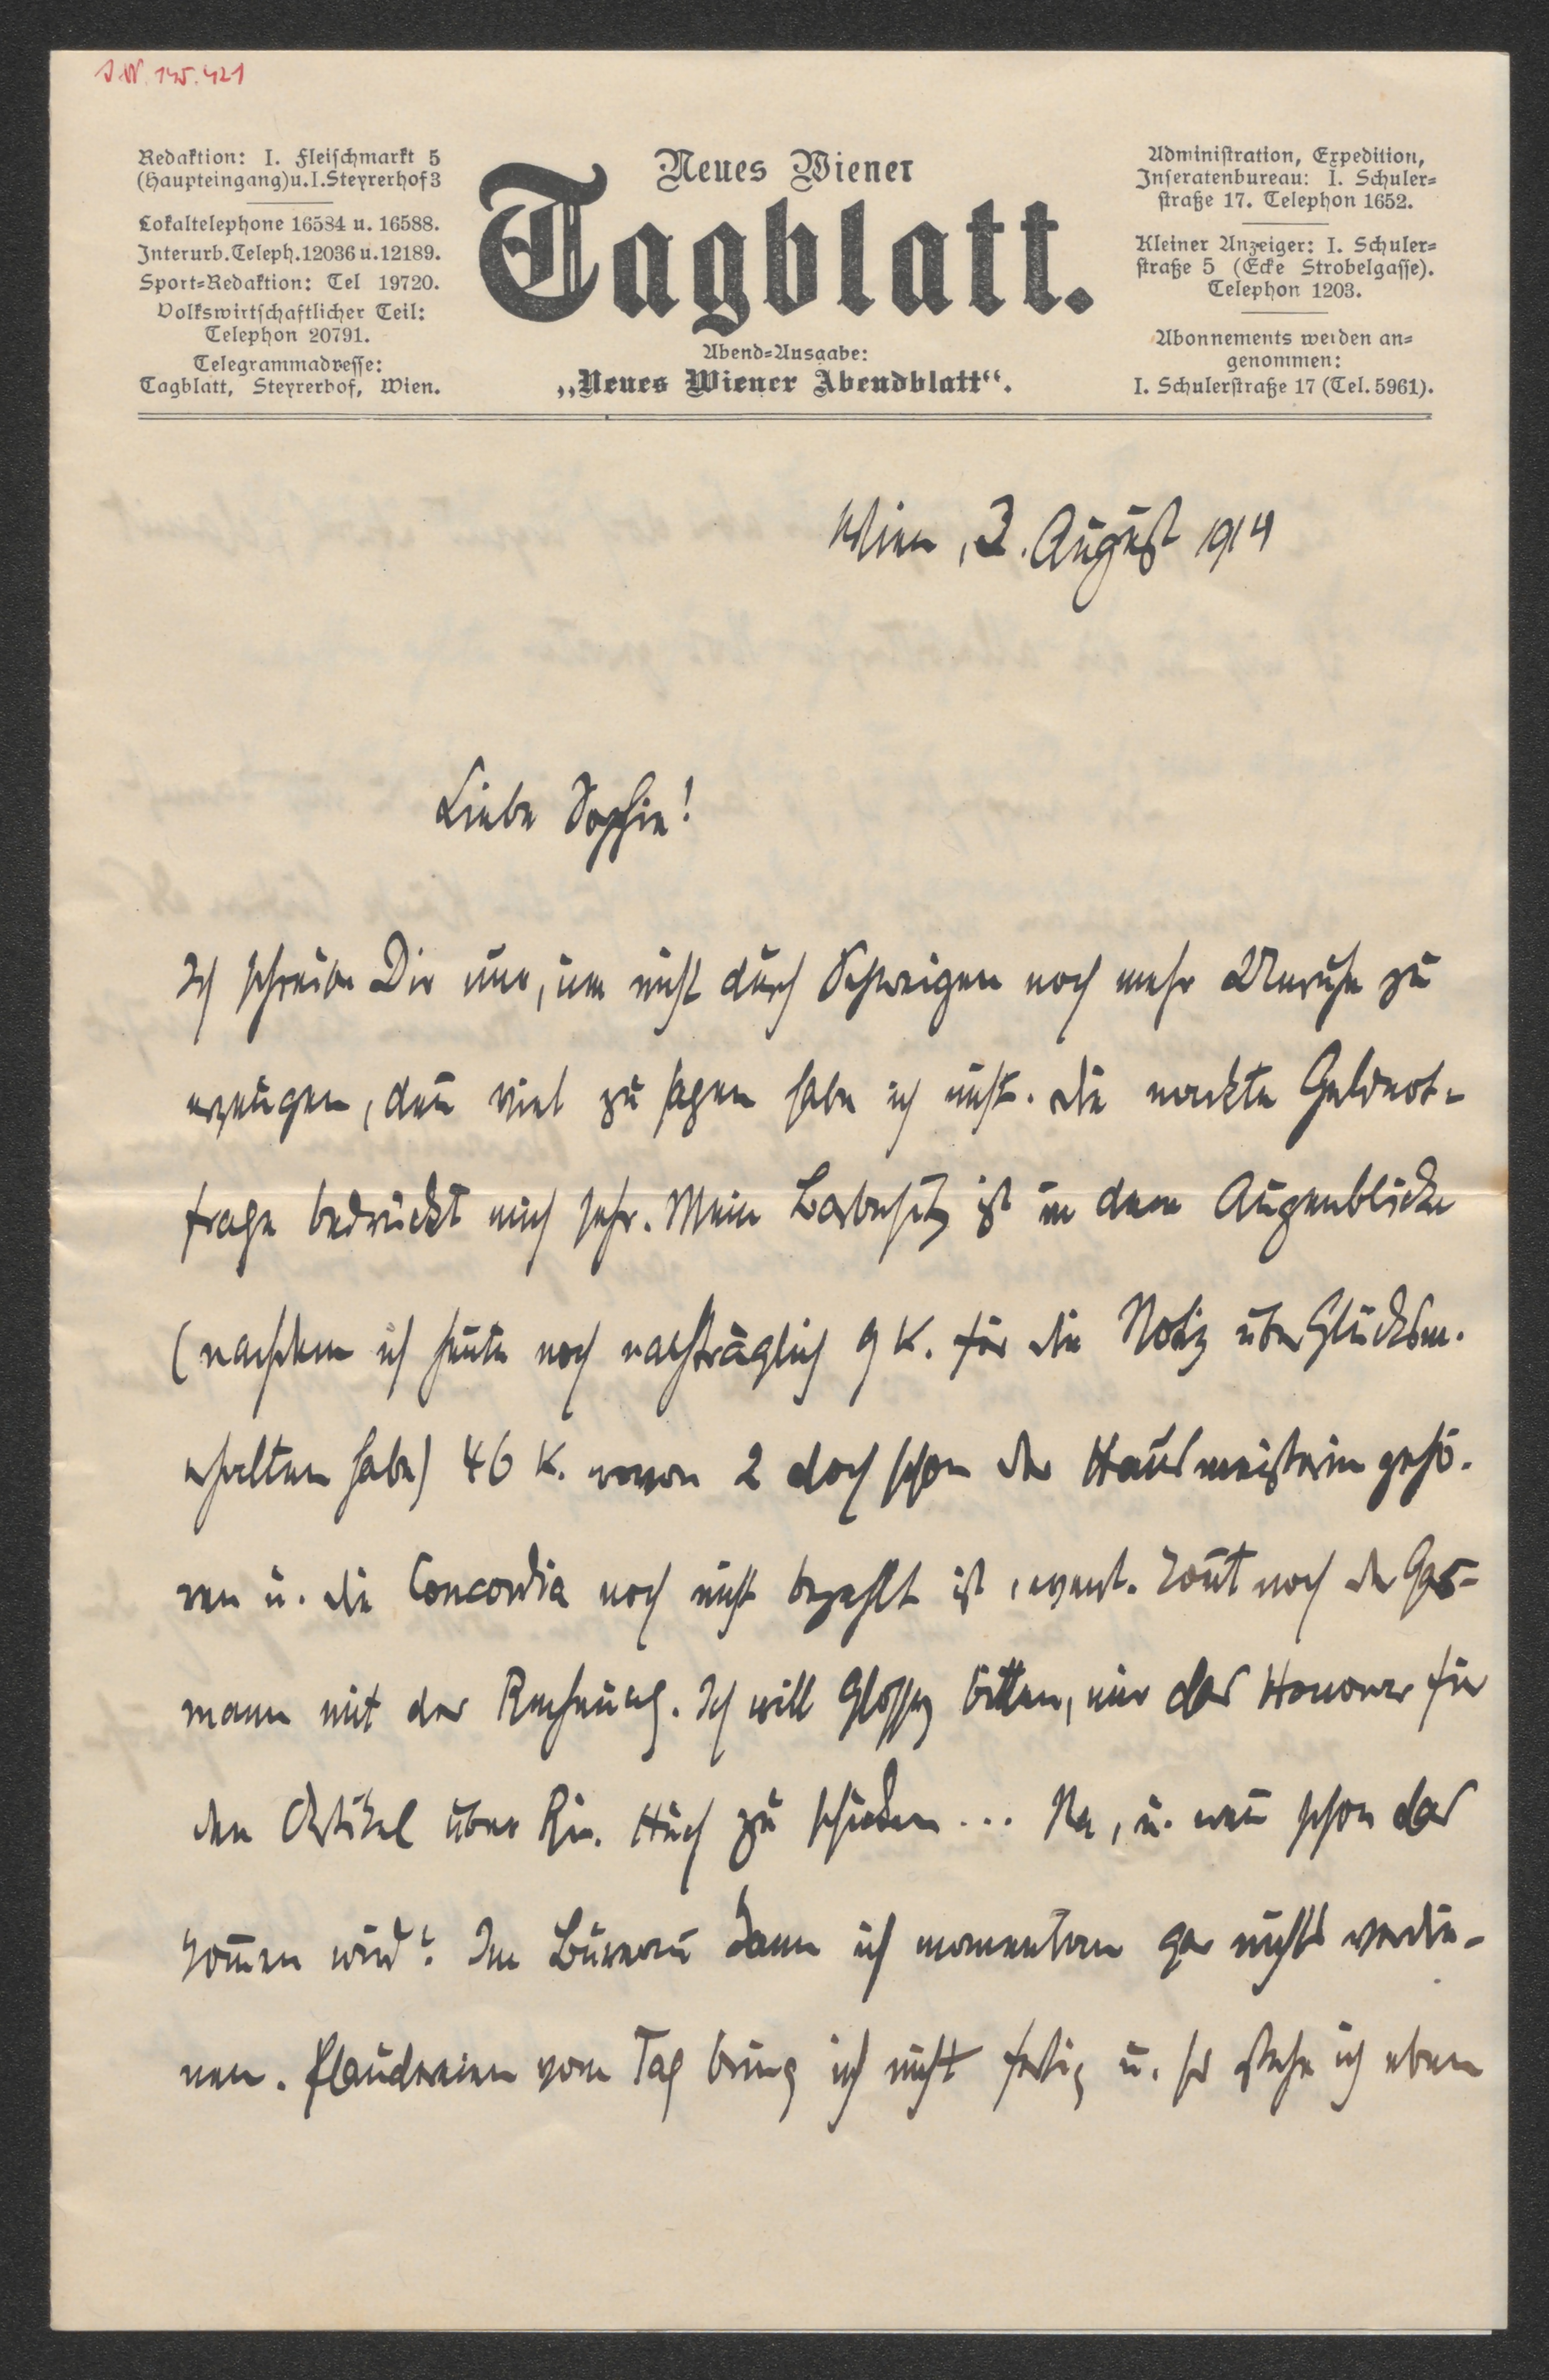 J.N. 145.421
Redaktion: I. Fleischmarkt 5
(Haupteingang) u. I. Steyrerhof 3
Lokaltelephone 16584 u. 16588.
Interurb. Teleph. 12036 u. 12189.
Sport-Redaktion: Tel 19720.
Volkswirtschaftlicher Teil:
Telephon 20791.
Telegrammadresse:
Tagblatt, Steyrerhof, Wien.
Neues Wiener
Tagblatt.
Abend-Ausgabe:
„Neues Wiener Abendblatt“.
Administration, Expedition,
Inseratenbureau: I. Schuler-
straße 17. Telephon 1652.
Kleiner Anzeiger: I. Schuler-
straße 5 (Ecke Strobelgasse).
Telephon 1203.
Abonnements werden an-
genommen:
I. Schulerstraße 17 (Tel. 5961).
Wien, 3. August 1914
Liebe Sophie!
Ich schreibe Dir nur, um nicht durch Schweigen noch mehr Unruhe zu
erzeugen, den̄ viel zu sagen habe ich nicht. Die nackte Geldnot-
frage bedrückt mich sehr. Mein Barbesitz ist in dem Augenblicke
(nachdem ich heute noch nachträglich 9 K. für die Notiz über Glücksm.
erhalten habe) 46 K. wovon 2 doch schon der Hausmeisterin gehö-
ren u. die Concordia noch nicht bezahlt ist, event. kom̄t noch der Gas-
mann mit der Rechnung. Ich will Glossy bitten, mir das Honorar für
den Artikel über Ric. Huch zu schicken ... Na, u. wen̄ schon das
kom̄en wird? Im Bureau kann ich momentan gar nichts verdie-
nen. Plaudereien vom Tag bring ich nicht fertig u. so stehe ich eben